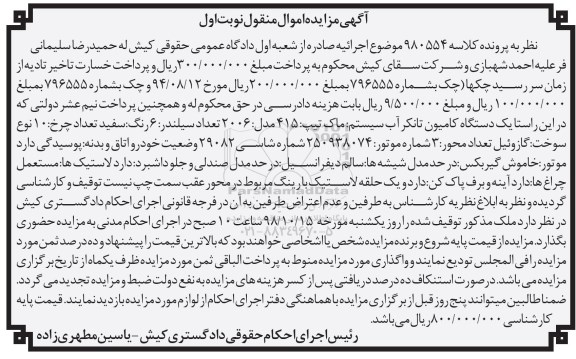 آگهی مزایده اموال منقول نوبت اول
نظر به پرونده کلاسه ۹۸۰۵۵۴ موضوع اجرائیه صادره از شعبه اول دادگاه عمومی حقوقی کیش له حمیدرضا سلیمانی
فر علیه احمد شهبازی و شرکت سقای کیش محکوم به پرداخت مبلغ ۳۰۰/۰۰۰/۰۰۰ریال و پرداخت خسارت تاخیر تادیه از
زمان سر رسید چکها (چک بشماره ۷۹۶۵۵۵ بمبلغ ۲۰۰/۰۰۰/۰۰۰ ریال مورخ ۹۴/۰۸/۱۲ و چک بشماره ۷۹۶۵۵۵ بمبلغ
۱۰۰/۰۰۰/۰۰۰ ریال و مبلغ ۹/۵۰۰/۰۰۰ ریال بابت هزینه دادرسی در حق محکوم له و همچنین پرداخت نیم عشر دولتی که
در این راستا یک دستگاه کامیون تانکر آب سیستم: ماک تیپ: ۴۱۵ مدل: ۲۰۰۶ تعداد سیلندر: ۶ رنگ: سفید تعداد چرخ: ۱۰ نوع
سوخت: گازوئیل تعداد محور: ۳ شماره موتور: ۲۵۰۹۳۸۰۷۴ شماره شاسی ۲۹۰۸۲ وضعیت خودرو اتاق و بدنه: پوسیدگی دارد
موتور: خاموش گیربکس: در حد مدل شیشه ها: سالم دیفرانسیل: در حد مدل صندلی و جلو داشبرد: دارد لاستیک ها: مستعمل
چراغ ها: دارد آینه و برف پاک کن: دارد و یک حلقه لاستیک با رینگ مربوط در محور عقب سمت چپ نیست توقیف و کارشناسی
گردیده و نظر به ابلاغ نظریه کارشناس به طرفین و عدم اعتراض طرفین به آن در فرجه قانونی اجرای احکام دادگستری کیش
در نظر دارد ملک مذکور توقیف شده را روز یکشنبه مورخه ۹۸/۱۰/۱۵ ساعت ۱۰ صبح در اجرای احکام مدنی به مزایده حضوری
بگذارد. مزایده از قیمت پایه شروع و برنده مزایده شخص یا اشخاصی خواهند بود که بالاترین قیمت را پیشنهاد و ده درصد ثمن مورد
مزایده را فی المجلس تودیع نمایند و واگذاری مورد مزایده منوط به پرداخت الباقی ثمن مورد مزایده ظرف یکماه از تاریخ برگزاری
مزایده می باشد. در صورت استنکاف ده درصد دریافتی پس از کسر هزینه های مزایده به نفع دولت ضبط و مزایده تجدید می گردد.
ضمنا طالبین میتوانند پنج روز قبل از برگزاری مزایده با هماهنگی دفتر اجرای احکام از لوازم مورد مزایده بازدید نمایند. قیمت پایه
کارشناسی ۸۰۰/۰۰۰/۰۰۰ ریال می باشد.
رئیس اجرای احکام حقوقی دادگستری کیش - یاسین مطهری زاده